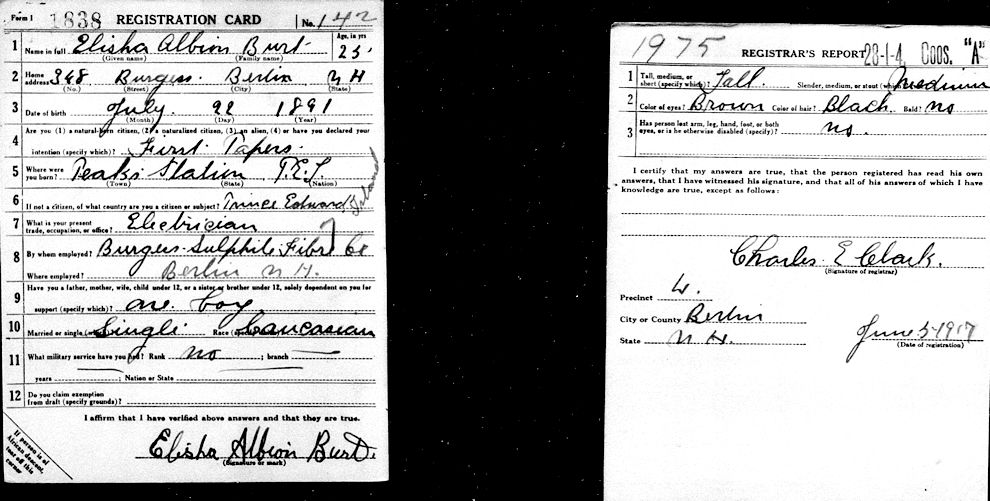 Form 1 1838 REGISTRATION CARD No. 142
1 Name in full Elisha Albion Burt Age, in yrs 25
(Given name) (Family name)
2 Home address 348 Burgess Berlin N H
(No.) (Street) (City) (State)
3 Date of birth July 22 1891
(Month) (Day) (Year)
4 Are you (1) a natural-born citizen, (2) a naturalized citizen, (3) an alien, (4) or have you declared your
intention (specify which)? First Papers
5 Where were you born? Peaks Station P.E.I.
(Town) (State) (Nation)
6 If not a citizen, of what country are you a citizen or subject? Prince Edward Island
7 What is your present trade, occupation, or office? Electrician
8 By whom employed? Burgess Sulphite Fibre Co
Where employed? Berlin N H.
9 Have you a father, mother, wife, child under 12, or a sister or brother under 12, solely dependent on you for
support (specify which)? one boy
10 Married or single (which)? Single Race (specify which)? Caucasian
11 What military service have you had? Rank no ; branch
years ; Nation or State
12 Do you claim exemption from draft (specify grounds)?
I affirm that I have verified above answers and that they are true.
Elisha Albion Burt.
(Signature or mark)
If person is of
African descent,
tear off this
corner
1975 REGISTRAR'S REPORT 28-1-4. Coos. "A"
1 Tall, medium, or short (specify which)? Tall Slender, medium, or stout (which)? Medium
2 Color of eyes? Brown Color of hair? Black Bald? no
3 Has person lost arm, leg, hand, foot, or both eyes, or is he otherwise disabled (specify)? no.
I certify that my answers are true, that the person registered has read his own
answers, that I have witnessed his signature, and that all of his answers of which I have
knowledge are true, except as follows:
Charles E Clark.
(Signature of registrar)
Precinct 4.
City or County Berlin
State N. H.
June 5-1917
(Date of registration)